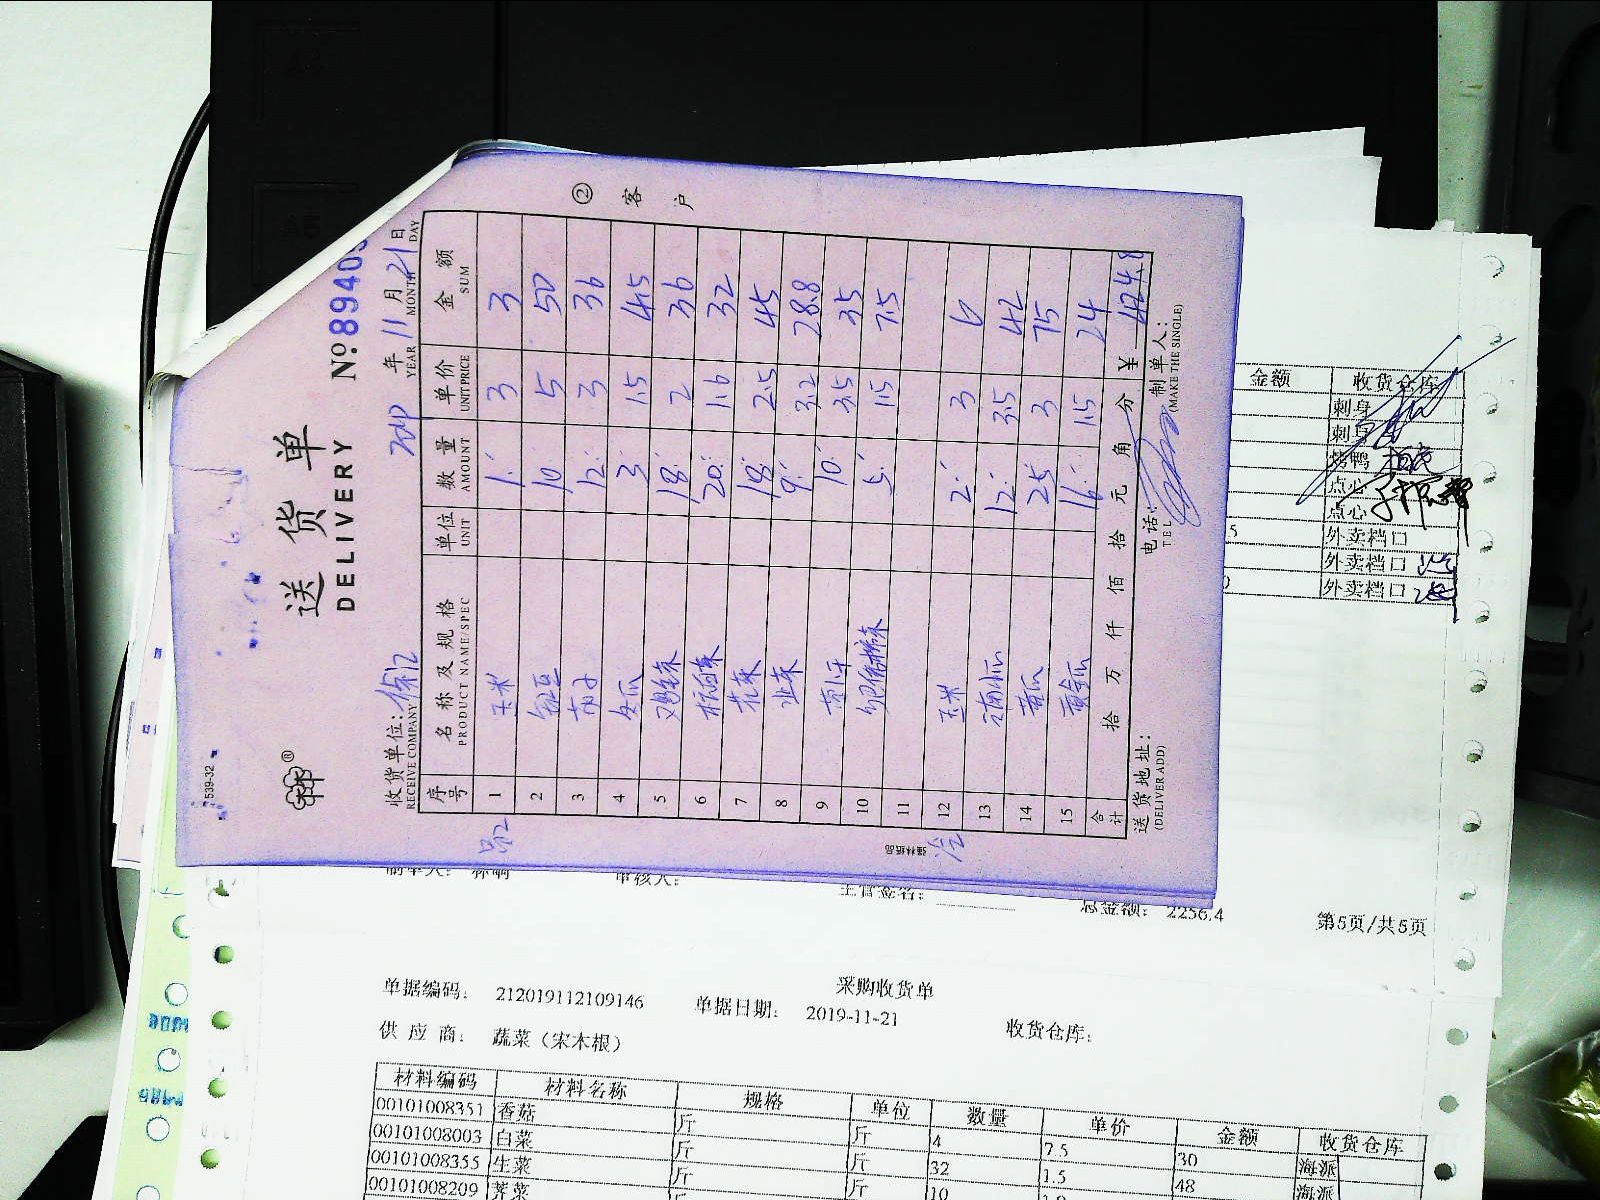 7539-32
送货单
DELIVERY
№ 89405
② 客户
收货单位: 徐汇 2019 年 11 月 21 日
RECEIVE COMPANY YEAR MONTH DAY
序号 名称及规格 单位 数量 单价 金额
PRODUCT NAME/SPEC UNIT AMOUNT UNIT PRICE SUM
1 玉米 1 3 3
2 10 5 50
3 12 3 36
4 冬瓜 3 1.5 4.5
5 鸡毛菜 18 2 36
6 杭白菜 20 1.6 32
7 花菜 18 2.5 45
8 9 3.2 28.8
9 黄豆芽 10 3.5 35
10 5 1.5 7.5
11
12 玉米 2 3 6
13 12 3.5 42
14 黄瓜 25 3 75
15 黄金瓜 16 1.5 24
合计 拾 万 仟 佰 拾 元 角 分 ¥ 424.8
送货地址: 电话: 制单人:
(DELIVER ADD) TEL (MAKE THE SINGLE)
强林纸品
金额 收货仓库
刺身
刺身
烤鸭
点心
点心
5 外卖档口
外卖档口
外卖档口
制单人: 审核人: 主管签名: 总金额: 2256.4
第5页/共5页
采购收货单
单据编码: 212019112109146 单据日期: 2019-11-21 收货仓库:
供应商: 蔬菜（宋本根）
材料编码 材料名称 规格 单位 数量 单价 金额 收货仓库
00101008351 香菇 斤 斤 4 7.5 30 海派
00101008003 白菜 斤 斤 32 1.5 48 海派
00101008355 生菜 斤 斤 10
00101008209 荠菜